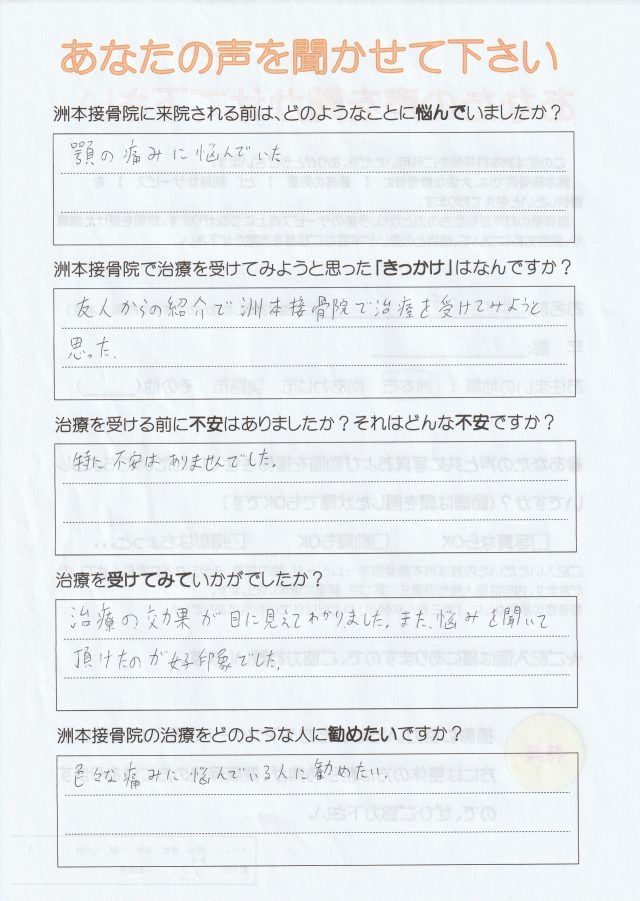 あなたの声を聞かせて下さい
洲本接骨院に来院される前は、どのようなことに悩んでいましたか？
顎の痛みに悩んでいた
洲本接骨院で治療を受けてみようと思った「きっかけ」はなんですか？
友人からの紹介で洲本接骨院で治療を受けてみようと
思った.
治療を受ける前に不安はありましたか？それはどんな不安ですか？
特に不安はありませんでした。
治療を受けてみていかがでしたか？
治療の効果が目に見えてわかりました。また、悩みを聞いて
頂けたのが好印象でした。
洲本接骨院の治療をどのような人に勧めたいですか？
色々な痛みに悩んでいる人に勧めたい。